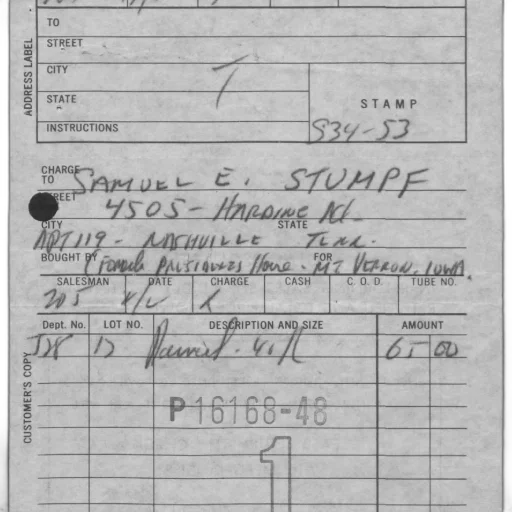 TO
STREET
CITY
STATE
STAMP
INSTRUCTIONS
S34-53
ADDRESS LABEL
CHARGE TO SAMUEL E. STUMPF
STREET 4505 - HARDING Rd.
CITY STATE
APT 119 - NASHVILLE TENN.
BOUGHT BY FOR
HOUSE - MT VERNON. IOWA.
SALESMAN DATE CHARGE CASH C. O. D. TUBE NO.
205
Dept. No. LOT NO. DESCRIPTION AND SIZE AMOUNT
12 65 00
CUSTOMER'S COPY
P16168-48
1